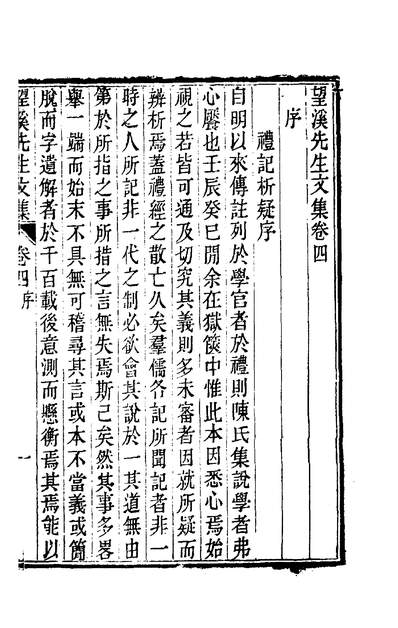 望溪先生文集卷四
序
禮記析疑序
自明以來傳註列於學官者於禮則陳氏集說學者弗
心饜也壬辰癸巳閒余在獄篋中惟此本因悉心焉始
視之若皆可通及切究其義則多未審者因就所疑而
辨析焉蓋禮經之散亡久矣羣儒各記所聞記者非一
時之人所記非一代之制必欲會其說於一其道無由
第於所指之事所措之言無失焉斯已矣然其事多畧
舉一端而始末不具無可稽尋其言或本不當義或簡
脫而字遺解者於千百載後意測而懸衡焉其焉能以
望溪先生文集
卷四序
一